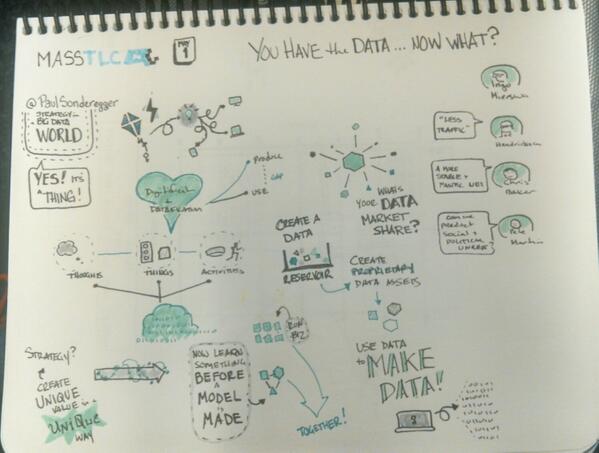 MASSTLC
MAY
1
YOU HAVE the DATA... NOW WHAT?
@PaulSonderegger
STRATEGY
BIG DATA
WORLD
YES! IT'S
A THING!
Digitification
+
DATAFICATION
PRODUCE
GAP
USE
THOUGHTS
THINGS
ACTIVITIES
WHAT'S
YOUR DATA
MARKET
SHARE?
CREATE A
DATA
RESERVOIR
CREATE
PROPRIETARY
DATA ASSETS
"LESS
TRAFFIC"
A MORE
Chris
Baker
CAN WE
PREDICT
SOCIAL +
POLITICAL
UNREST
Pete
STRATEGY?
CREATE
UNIQUE
VALUE IN
UNIQUE
WAY
NOW LEARN
SOMETHING
BEFORE
A
MODEL
IS
MADE
RUN
BIZ
TOGETHER!
USE DATA
to MAKE
DATA!!